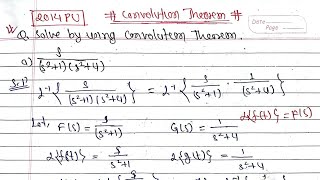 2014 PU # Convolution Theorem #
Date
Page
Q. Solve by using Convolution Theorem.
a) s/(s²+1)(s²+4)
Sol?
2⁻¹{s/(s²+1)(s²+4)} = 2⁻¹{s/(s²+1) · 1/(s²+4)}
Let, F(s) = s/(s²+1) G(s) = 1/s²+4 2{f(t)} = F(s)
2{f(t)} = s/s²+1 2{g(t)} = 1/s²+4